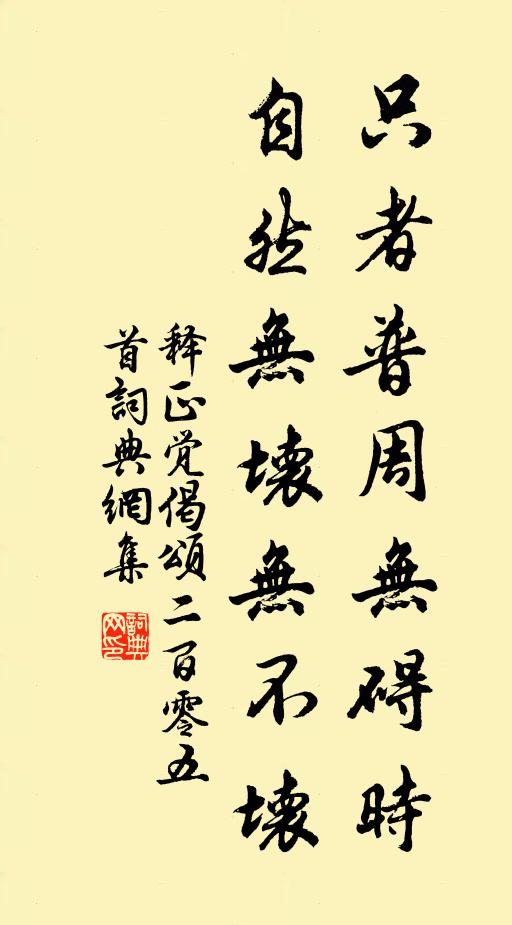 只者普周無碍時
自然無壞無不壞
释正觉偈頌二百零五
首詞典網集
詞典网印